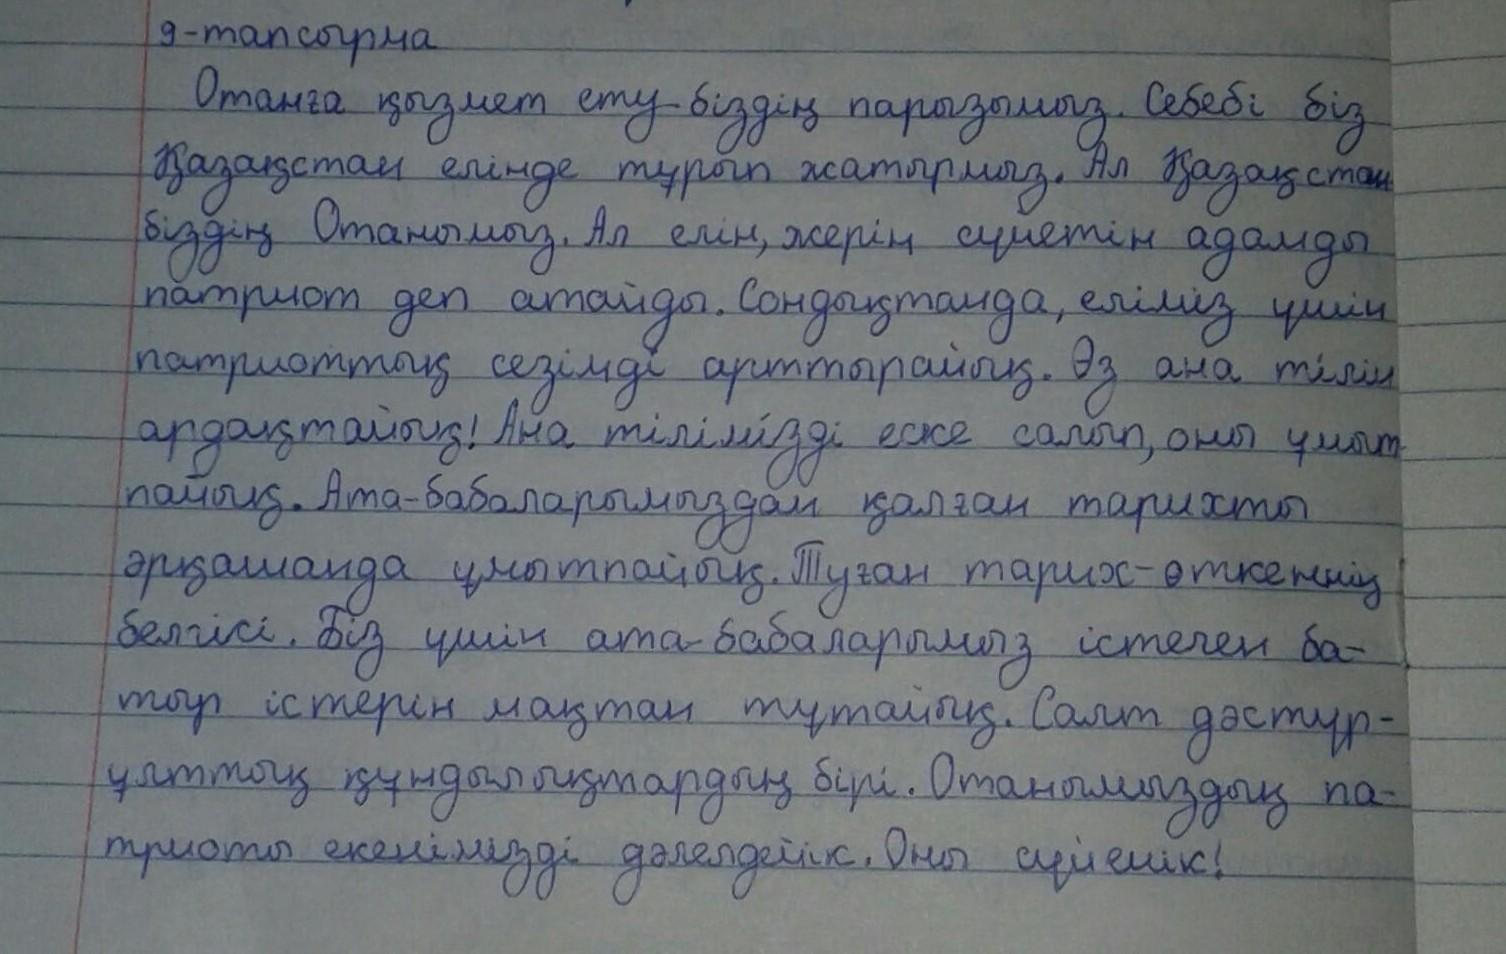 9-тапсырма
Отанға қызмет ету-біздің парызымыз. Себебі біз
Қазақстан елінде тұрып жатырмыз. Ал Қазақстан
біздің Отанымыз. Ал елін, жерін сүйетін адамды
патриот деп атайды. Сондықтанда, еліміз үшін
патриоттық сезімді арттырайық. Өз ана тілін
ардақтайық! Ана тілімізді еске салып, оны ұмыт
пайық. Ата-бабаларымыздан қалған тарихты
әрқашанда ұмытпайық. Туған тарих-өткеннің
белгісі. Біз үшін ата-бабаларымыз істеген ба-
тыр істерін мақтан тұтайық. Салт дәстүр-
ұлттық құндылықтардың бірі. Отанымыздың па-
триоты екенімізді дәлелдейік. Оны сүйейік!